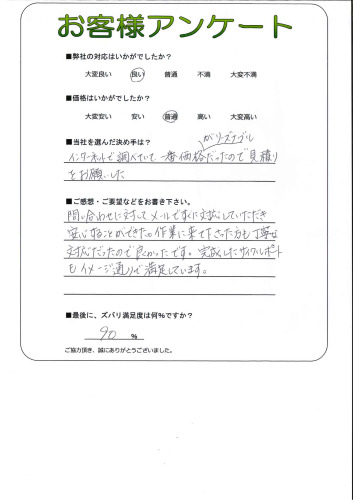 お客様アンケート
■弊社の対応はいかがでしたか？
大変良い 良い 普通 不満 大変不満
■価格はいかがでしたか？
大変安い 安い 普通 高い 大変高い
■当社を選んだ決め手は？
がリーズナブル
インターネットで調べていて一番価格だったので見積り
をお願いした
■ご感想・ご要望などをお書き下さい。
問い合わせに対してメールですぐに対応していただき
安心することができた。作業に来て下さった方も丁寧な
対応だったので良かったです。完成したサイクルポート
もイメージ通りで満足しています。
■最後に、ズバリ満足度は何%ですか？
90 %
ご協力頂き、誠にありがとうございました。